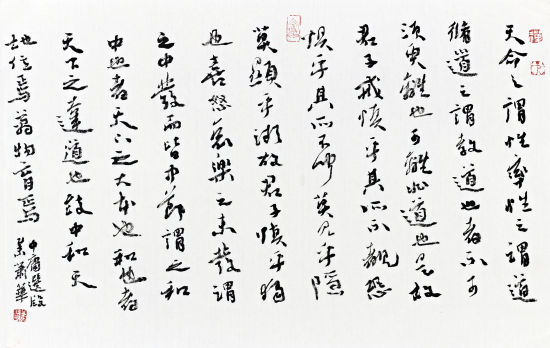 天命之謂性率性之謂道
脩道之謂教道也者不可
須臾離也可離非道也是故
君子戒慎乎其所不覩恐
惧乎其所不聞莫見乎隱
莫顯乎微故君子慎乎獨
也喜怒哀樂之未發謂
之中發而皆中節謂之和
中也者天下之大本也和也者
天下之達道也致中和天
地位焉萬物育焉
中庸選段